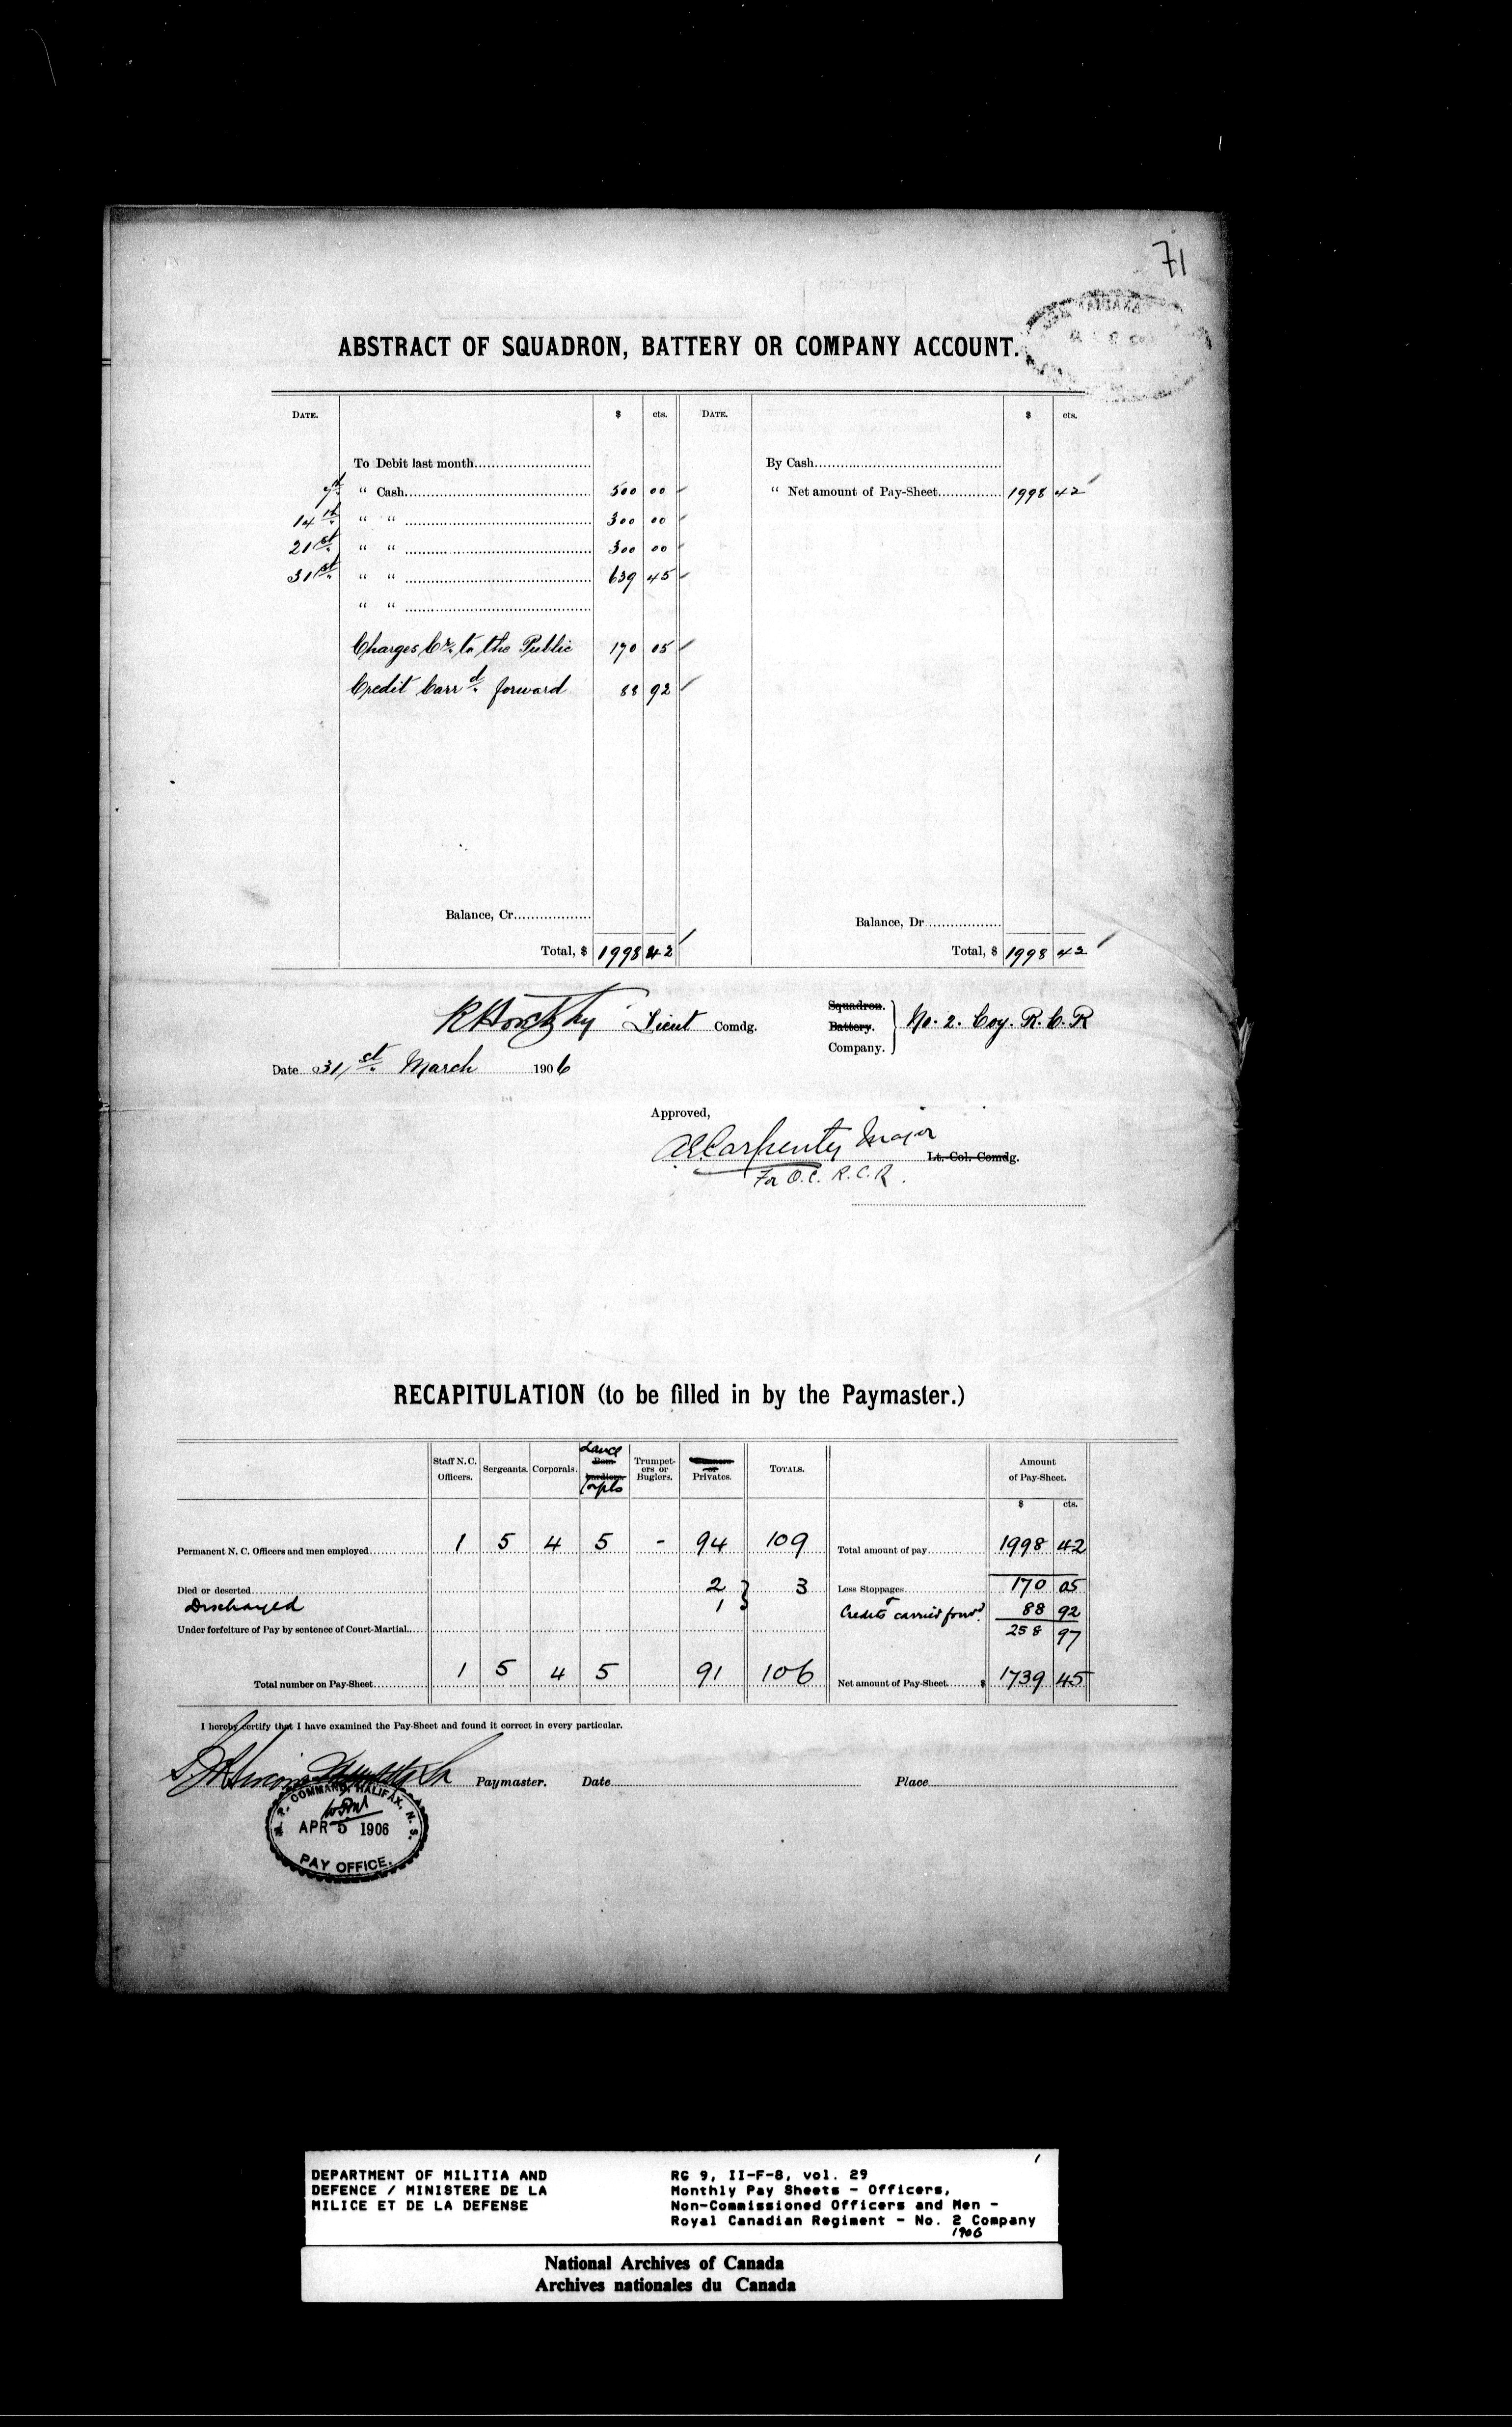 71
ABSTRACT OF SQUADRON, BATTERY OR COMPANY ACCOUNT.
DATE. $ cts. DATE. $ cts.
To Debit last month By Cash
7th " Cash 500 00 " Net amount of Pay-Sheet 1998 42
14th " " 300 00
21st " " 300 00
31st " " 639 45
" "
Charges Cr. to the Public 170 05
Credit Carrd. forward 88 92
Balance, Cr Balance, Dr
Total, $ 1998 42 Total, $ 1998 42
Lieut Comdg. Squadron. Battery. Company. } No. 2. Coy. R. C. R
Date 31st March 1906
Approved,
A.E. Carpenter Major Lt. Col. Comdg.
For O.C. R.C.R.
RECAPITULATION (to be filled in by the Paymaster.)
Staff N. C. Officers. Sergeants. Corporals. Lance Bombardiers Corpls Trumpeters or Buglers. or Privates. TOTALS. Amount of Pay-Sheet.
$ cts.
Permanent N. C. Officers and men employed 1 5 4 5 - 94 109 Total amount of pay 1998 42
Died or deserted 2 } 3 Less Stoppages 170 05
Discharged 1 Credits carried forwd. 88 92
Under forfeiture of Pay by sentence of Court-Martial 258 97
Total number on Pay-Sheet 1 5 4 5 91 106 Net amount of Pay-Sheet $ 1739 45
I hereby certify that I have examined the Pay-Sheet and found it correct in every particular.
Paymaster. Date Place
COMMAND, HALIFAX, N. S.
APR 5 1906
PAY OFFICE.
DEPARTMENT OF MILITIA AND
DEFENCE / MINISTERE DE LA
MILICE ET DE LA DEFENSE
RG 9, II-F-8, vol. 29
Monthly Pay Sheets - Officers,
Non-Commissioned Officers and Men -
Royal Canadian Regiment - No. 2 Company
1906
National Archives of Canada
Archives nationales du Canada